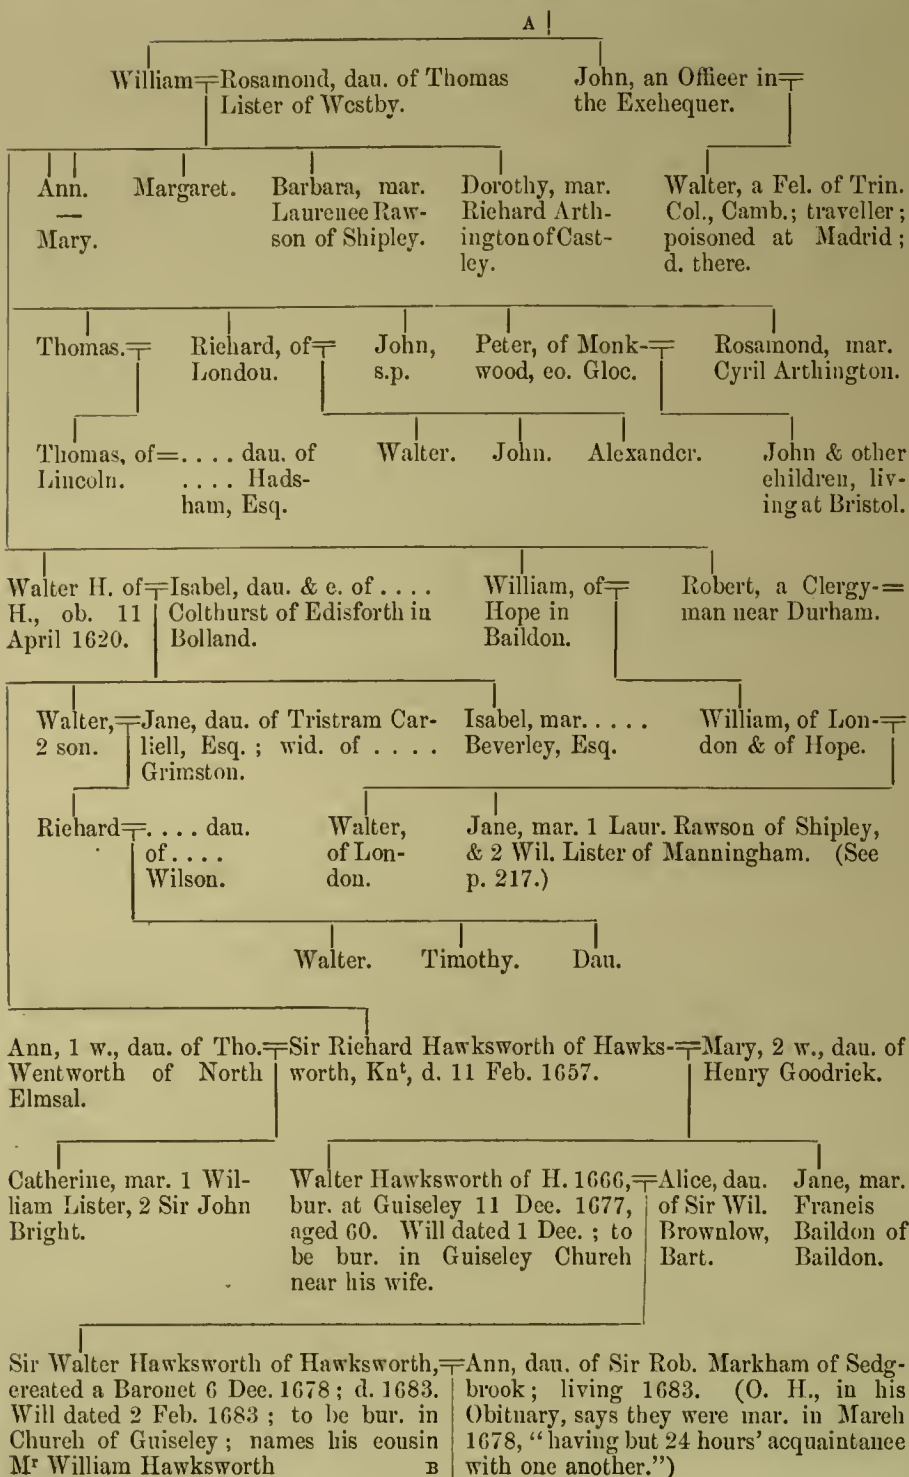 A
William Rosamond, dau. of Thomas
Lister of Westby.
John, an Officer in
the Exchequer.
Ann.
—
Mary.
Margaret.
Barbara, mar.
Laurence Raw-
son of Shipley.
Dorothy, mar.
Richard Arth-
ington of Cast-
ley.
Walter, a Fel. of Trin.
Col., Camb.; traveller;
poisoned at Madrid;
d. there.
Thomas.
Richard, of
London.
John,
s.p.
Peter, of Monk-
wood, co. Gloc.
Rosamond, mar.
Cyril Arthington.
Thomas, of=. . . . dau. of
Lincoln. . . . . Hads-
ham, Esq.
Walter. John. Alexander.
John & other
children, liv-
ing at Bristol.
Walter H. of
H., ob. 11
April 1620.
Isabel, dau. & e. of . . . .
Colthurst of Edisforth in
Bolland.
William, of
Hope in
Baildon.
Robert, a Clergy-=
man near Durham.
Walter,
2 son.
Jane, dau. of Tristram Car-
liell, Esq.; wid. of . . . .
Grimston.
Isabel, mar. . . . .
Beverley, Esq.
William, of Lon-
don & of Hope.
Richard
. . . . dau.
of . . . .
Wilson.
Walter,
of Lon-
don.
Jane, mar. 1 Laur. Rawson of Shipley,
& 2 Wil. Lister of Manningham. (See
p. 217.)
Walter. Timothy. Dau.
Ann, 1 w., dau. of Tho.
Wentworth of North
Elmsal.
Sir Richard Hawksworth of Hawks-
worth, Knᵗ, d. 11 Feb. 1657.
Mary, 2 w., dau. of
Henry Goodrick.
Catherine, mar. 1 Wil-
liam Lister, 2 Sir John
Bright.
Walter Hawksworth of H. 1666,
bur. at Guiseley 11 Dec. 1677,
aged 60. Will dated 1 Dec.; to
be bur. in Guiseley Church
near his wife.
Alice, dau.
of Sir Wil.
Brownlow,
Bart.
Jane, mar.
Francis
Baildon of
Baildon.
Sir Walter Hawksworth of Hawksworth,
created a Baronet 6 Dec. 1678; d. 1683.
Will dated 2 Feb. 1683; to be bur. in
Church of Guiseley; names his cousin
Mʳ William Hawksworth B
Ann, dau. of Sir Rob. Markham of Sedg-
brook; living 1683. (O. H., in his
Obituary, says they were mar. in March
1678, "having but 24 hours' acquaintance
with one another.")